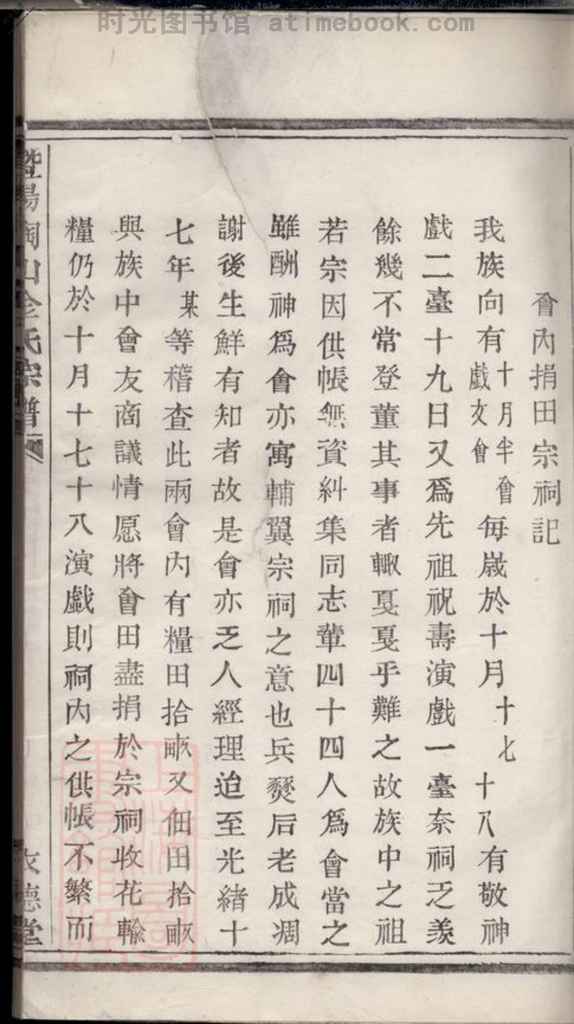 时光图书馆 atimebook.com
會內捐田宗祠記
我族向有十月半會戲文會每歲於十月十七十八有敬神
戲二臺十九日又爲先祖祝壽演戲一臺奈祠乏羨
餘幾不常登董其事者輙戛戛乎難之故族中之祖
若宗因供帳無資糾集同志輩四十四人爲會當之
雖酬神爲會亦寓輔翼宗祠之意也兵燹后老成凋
謝後生鮮有知者故是會亦乏人經理迫至光緒十
七年某等稽查此兩會內有糧田拾畝又佃田拾畝
與族中會友商議情愿將會田盡捐於宗祠收花輸
糧仍於十月十七十八演戲則祠內之供帳不繁而
暨陽陶山金氏宗譜
德堂